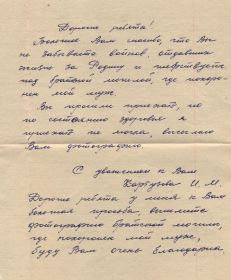 Дорогие ребята!
Большое Вам спасибо, что Вы
не забываете воинов, отдавших
жизнь за Родину и
над братской могилой, где похоро-
нен мой муж.
Вы просили приехать, но
по состоянию здоровья я
приехать не могла, высылаю
Вам фотографию.
С уважением к Вам
И. М.
Дорогие ребята у меня к Вам
большая просьба, вышлите
фотографию братской могилы,
где похоронен мой муж,
буду Вам очень благодарна